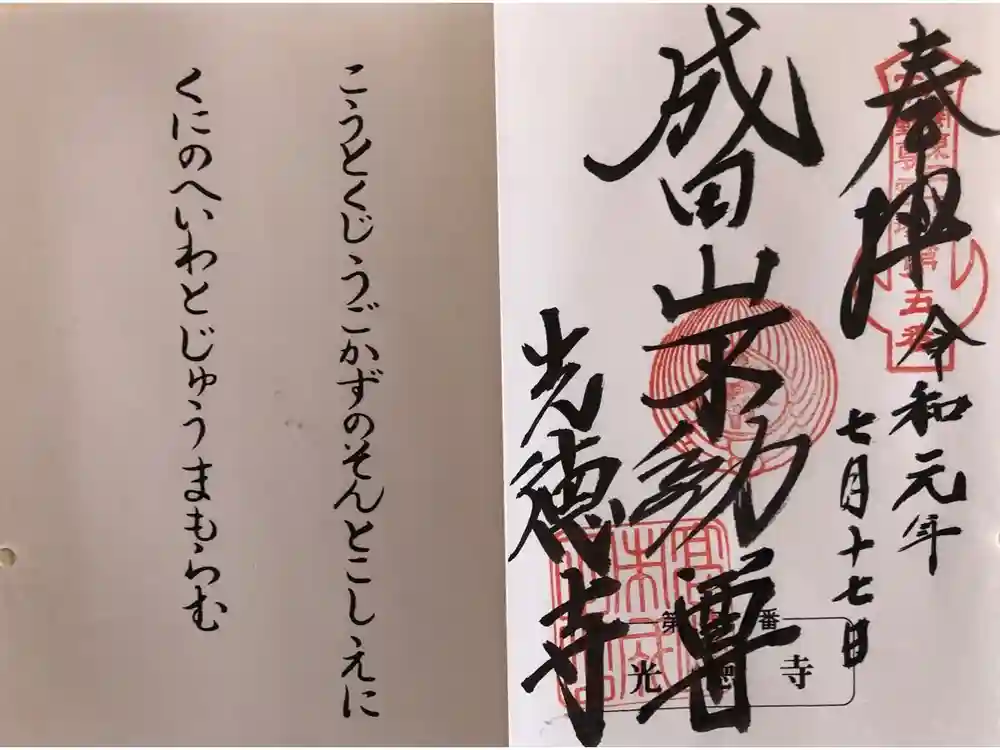 奉拝
令和元年
七月十七日
成田山不動尊
光徳寺
第五番
こうとくじうごかずのそんとこしえに
くにのへいわとじゅうまもらむ